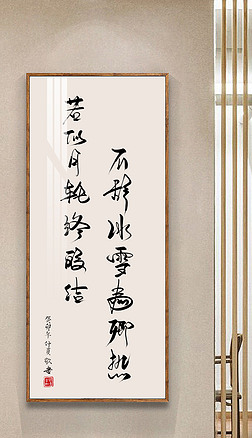 若似月轮终皎洁
不辞冰雪為卿热